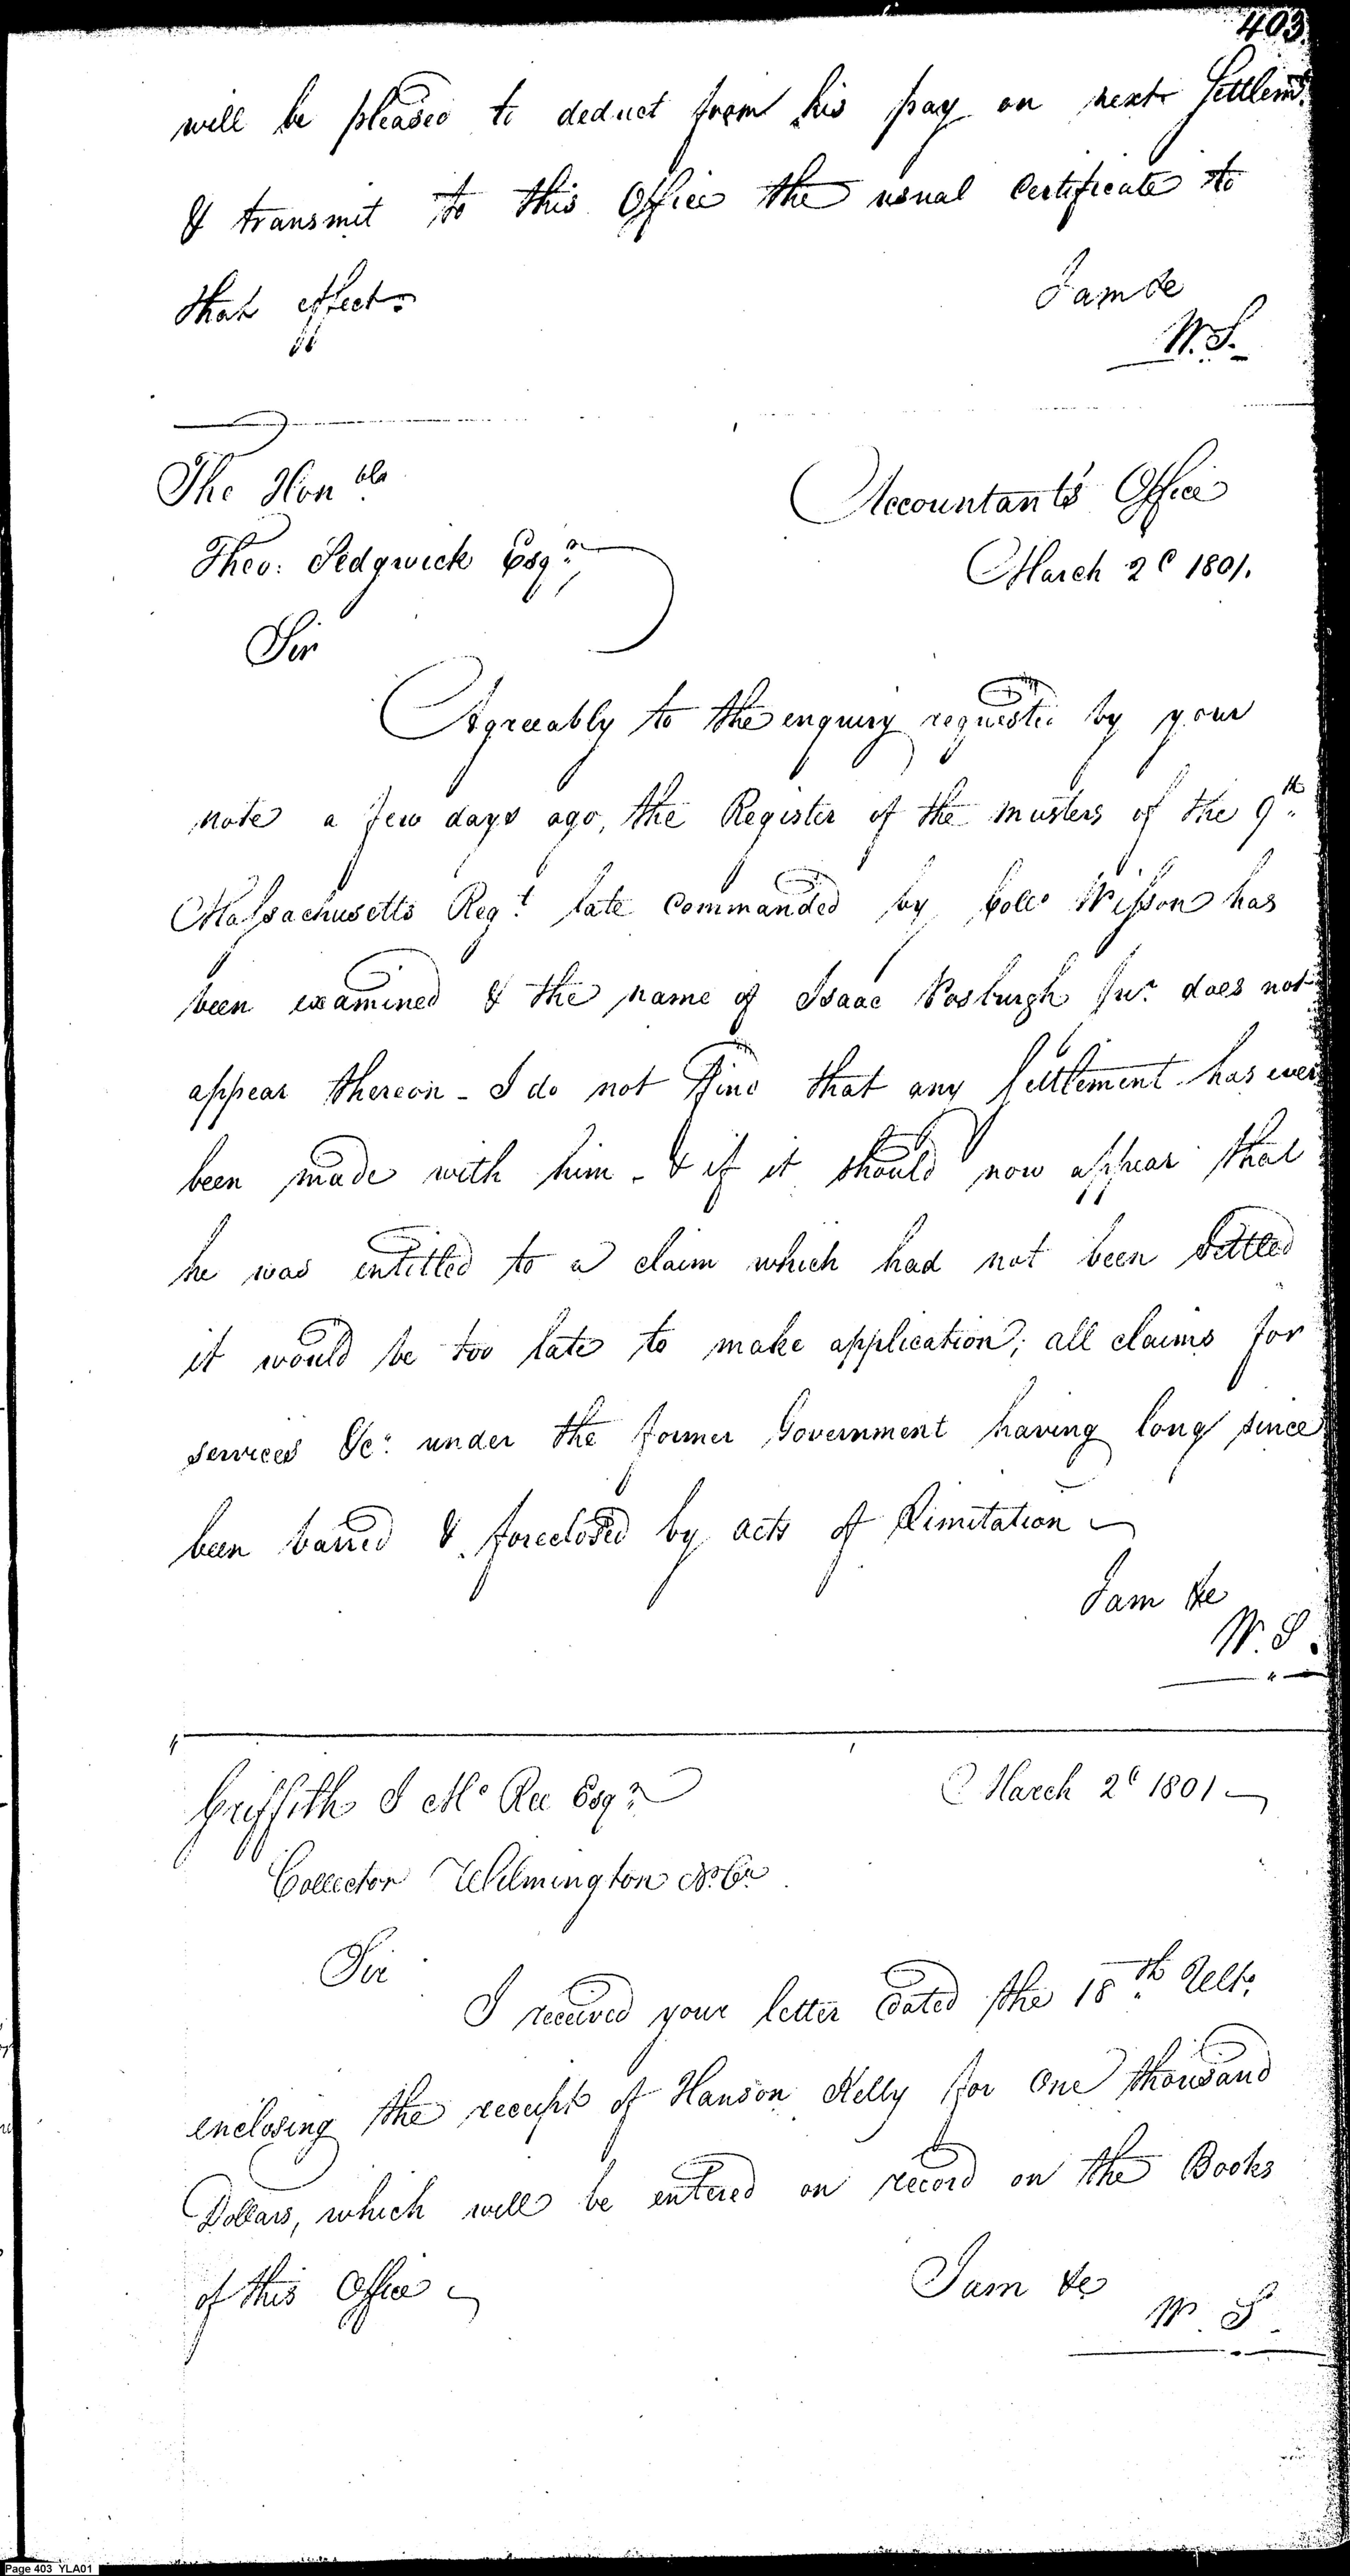 403.
will be pleased to deduct from his pay on next Settlemt.
& transmit to this Office the usual Certificate to
that effect.
I am &c
W. S.
The Honble
Accountant's Office
Theo: Sedgwick Esqr.
March 2d 1801.
Sir
Agreeably to the enquiry requested by your
note a few days ago, the Register of the musters of the 9th.
Massachusetts Regt. late commanded by Collo Wesson has
been examined & the name of Isaac Vosburgh Junr. does not
appear thereon - I do not find that any Settlement has ever
been made with him - & if it should now appear that
he was entitled to a claim which had not been settled
it would be too late to make application; all claims for
services &c: under the former Government having long since
been barred & foreclosed by acts of Limitation
I am &c
W. S.
Griffith J Mc Ree Esqr.
March 2d 1801
Collector Wilmington No. Ca.
Sir
I received your letter dated the 18th. Ulto.
enclosing the receipt of Hanson Kelly for One thousand
Dollars, which will be entered on record on the Books
of this Office
I am &c
W. S.
Page 403 YLA01